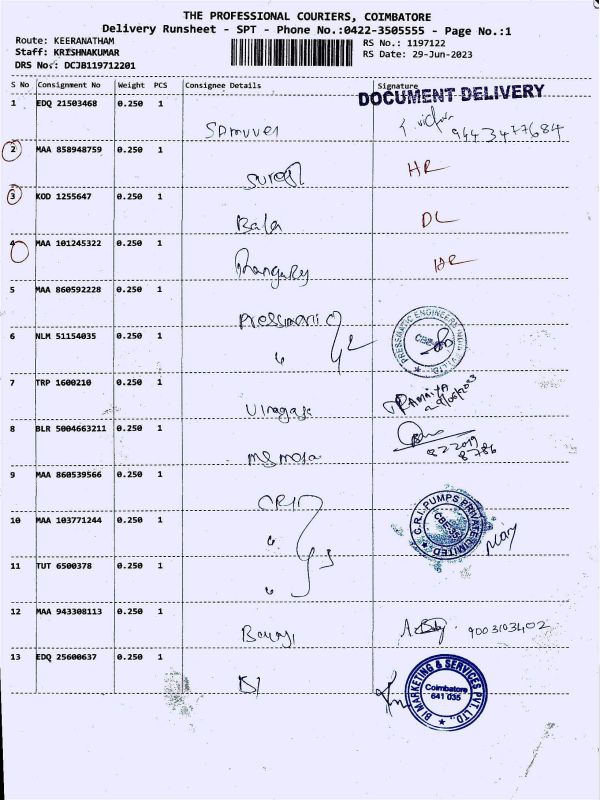 THE PROFESSIONAL COURIERS, COIMBATORE
Delivery Runsheet - SPT - Phone No.:0422-3505555 - Page No.:1
Route: KEERANATHAM
Staff: KRISHNAKUMAR
DRS No.: DCJB119712201
RS No.: 1197122
RS Date: 29-Jun-2023
S No Consignment No Weight PCS Consignee Details Signature
DOCUMENT DELIVERY
1 EDQ 21503468 0.250 1
9443477684
2 MAA 858948759 0.250 1 HR
3 KOD 1255647 0.250 1 Bala DL
4 MAA 101245322 0.250 1 HR
5 MAA 860592228 0.250 1
PRESSMATIC ENGINEERS INDIA PVT. LTD.
6 NLM 51154035 0.250 1
7 TRP 1600210 0.250 1
8 BLR 5004663211 0.250 1
822019
8786
9 MAA 860539566 0.250 1 CRI
C.R.I. PUMPS PRIVATE LIMITED
CBE-35
10 MAA 103771244 0.250 1
11 TUT 6500378 0.250 1
12 MAA 943308113 0.250 1 9003103402
13 EDQ 25600637 0.250 1
BI MARKETING & SERVICES PVT. LTD.,
Coimbatore
641 035